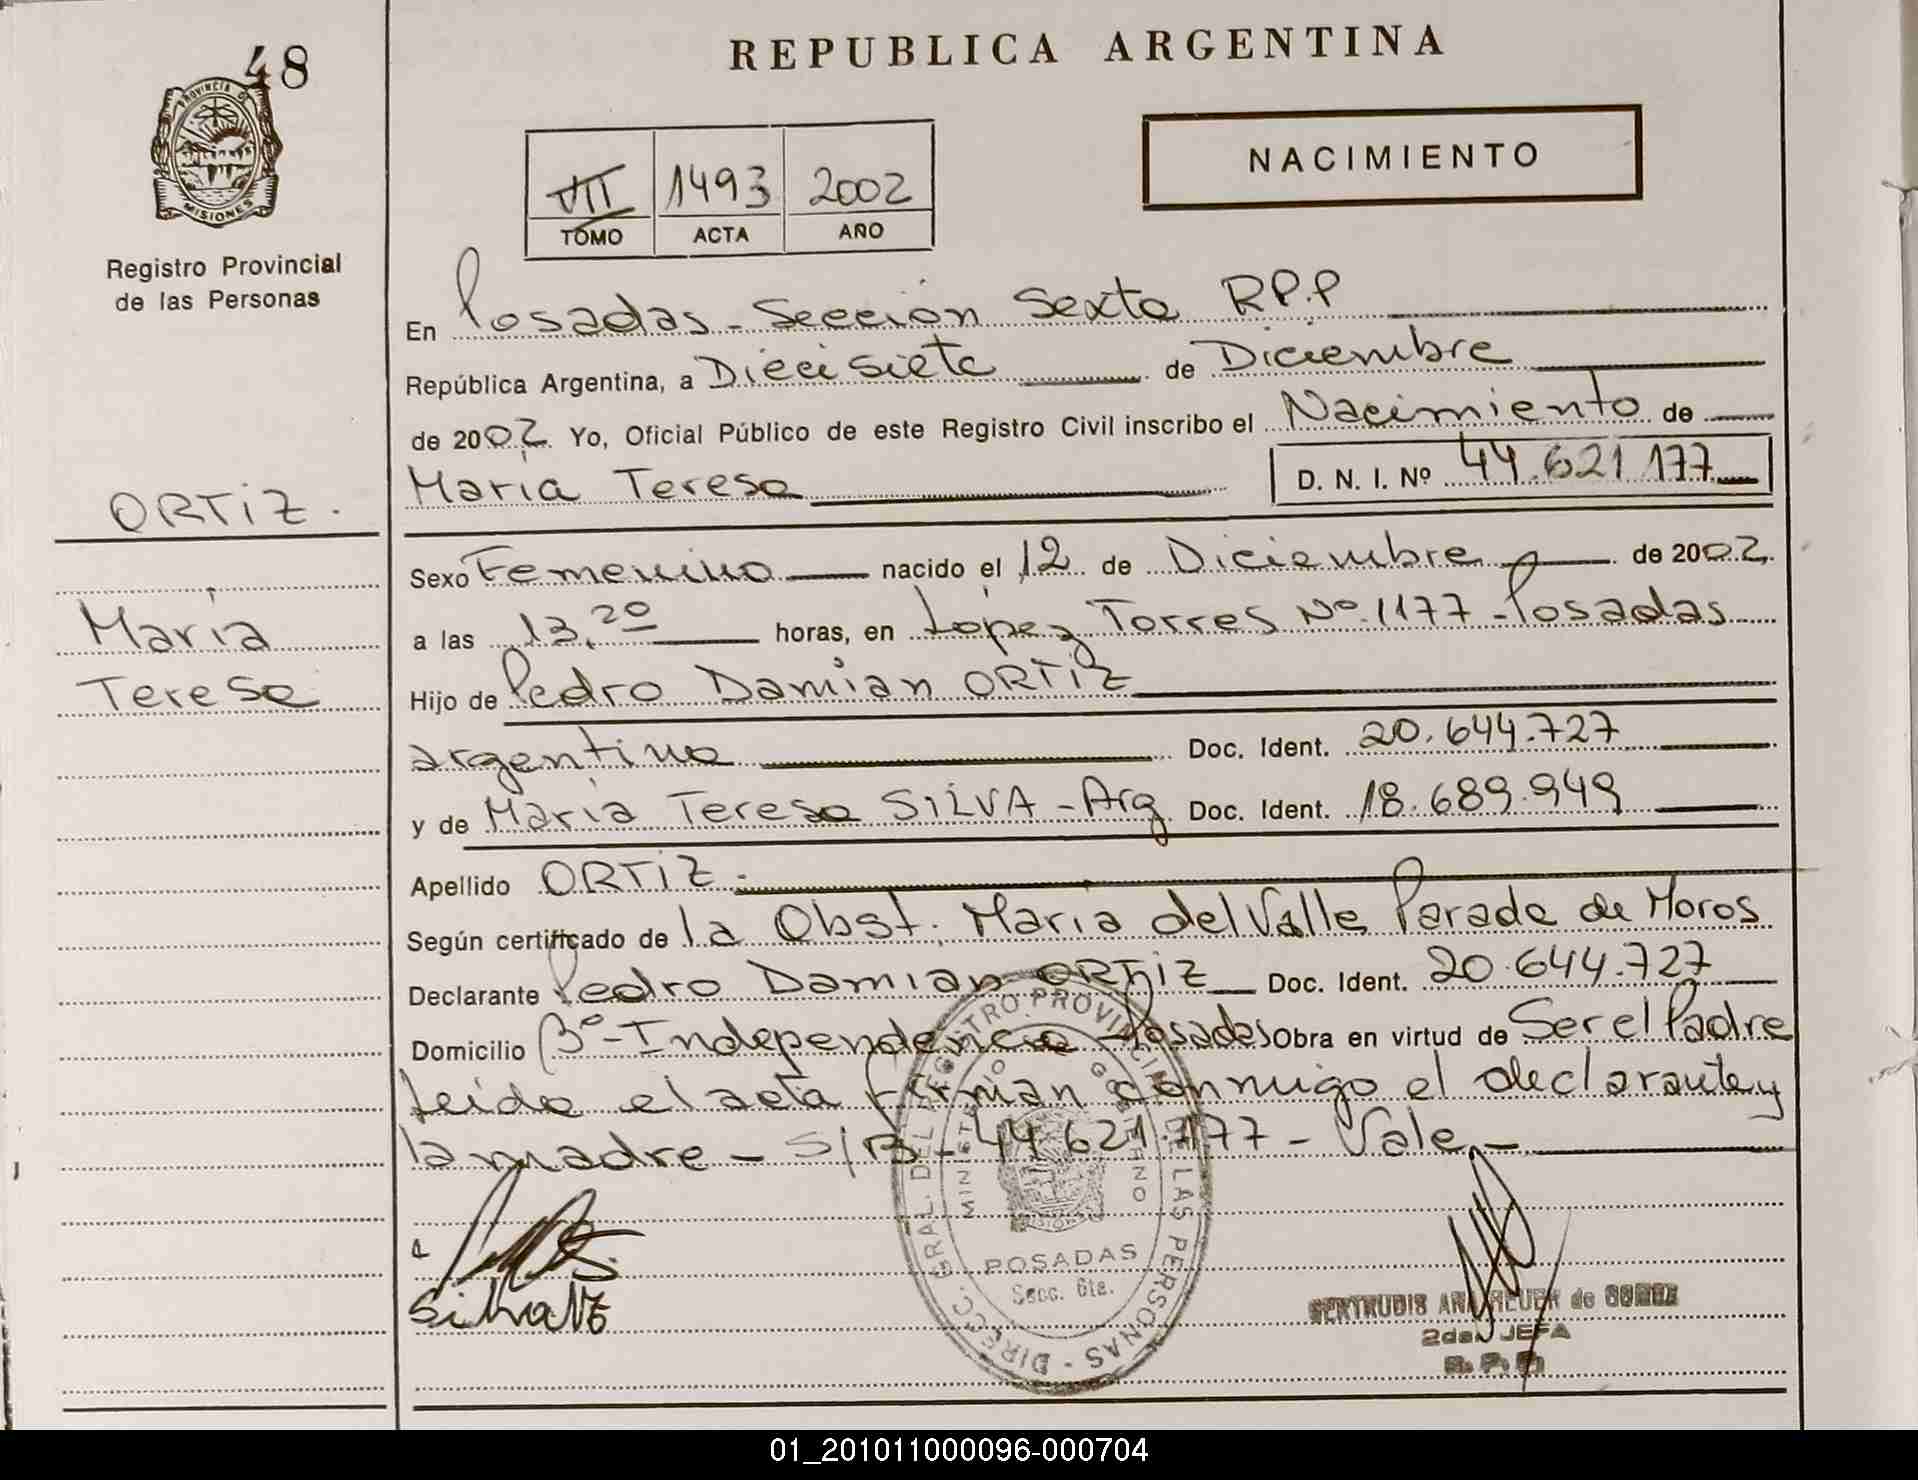 48
REPUBLICA ARGENTINA
PROVINCIA DE
MISIONES
Registro Provincial
de las Personas
NACIMIENTO
VII 1493 2002
TOMO ACTA AÑO
En Posadas - Sección Sexta R.P.P
República Argentina, a Diecisiete de Diciembre
de 2002. Yo, Oficial Público de este Registro Civil inscribo el Nacimiento de
María Teresa D. N. I. Nº 44.621.177
ORTIZ.
María
Teresa
Sexo Femenino nacido el 12 de Diciembre de 2002.
a las 13,20 horas, en López Torres Nº 1177 - Posadas
Hijo de Pedro Damián ORTIZ
argentino Doc. Ident. 20.644.727
y de María Teresa SILVA - Arg Doc. Ident. 18.689.949
Apellido ORTIZ.
Según certificado de la Obst. María del Valle Parada de Moros
Declarante Pedro Damian ORTIZ Doc. Ident. 20.644.727
Domicilio Bº - Independencia - Posadas Obra en virtud de Ser el Padre
Leida el acta firman conmigo el declarante y
la madre - S/B - 44.621.177 - Vale -
DIREC. GRAL. DEL REGISTRO PROVINCIAL DE LAS PERSONAS
MINISTERIO GOBIERNO
MISIONES
POSADAS
Secc. 6ta.
Silva MT
GERTRUDIS ANA de
2da. JEFA
01_201011000096-000704